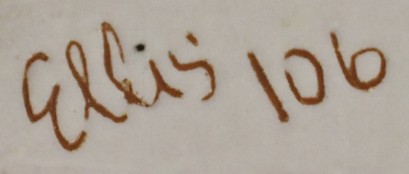 Ellis 106